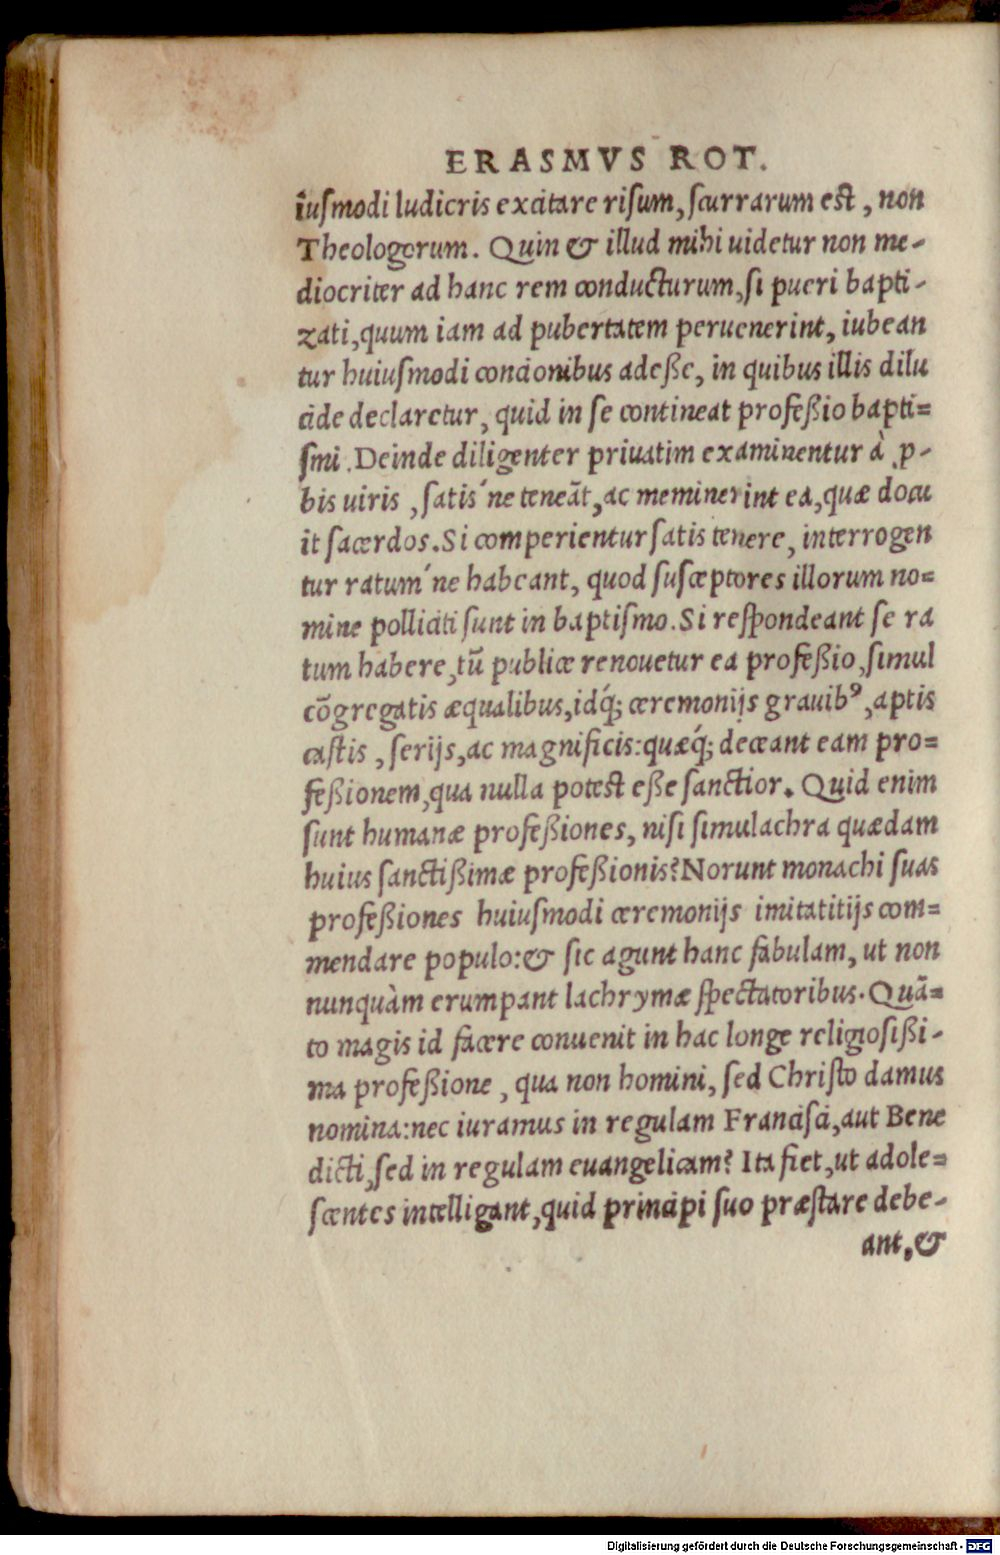 ERASMVS ROT.
iusmodi ludicris excitare risum, scurrarum est, non
Theologorum. Quin & illud mihi uidetur non me-
diocriter ad hanc rem conducturum, si pueri bapti-
zati, quum iam ad pubertatem peruenerint, iubean
tur huiusmodi concionibus adeße, in quibus illis dilu
cide declaretur, quid in se contineat profeßio bapti=
smi. Deinde diligenter priuatim examinentur à ꝓ-
bis uiris, satis´ne teneāt, ac meminerint ea, quæ docu
it sacerdos. Si comperientur satis tenere, interrogen
tur ratum´ne habeant, quod susceptores illorum no=
mine polliciti sunt in baptismo. Si respondeant se ra
tum habere, tū publice renouetur ea profeßio, simul
cōgregatis æqualibus, idq́; ceremonijs grauibꝰ, aptis
castis, serijs, ac magnificis: quæq́; deceant eam pro=
feßionem, qua nulla potest eße sanctior. Quid enim
sunt humanæ profeßiones, nisi simulachra quædam
huius sanctißimæ profeßionis? Norunt monachi suas
profeßiones huiusmodi ceremonijs imitatitijs com=
mendare populo: & sic agunt hanc fabulam, ut non
nunquàm erumpant lachrymæ spectatoribus. Quā=
to magis id facere conuenit in hac longe religiosißi-
ma profeßione, qua non homini, sed Christo damus
nomina: nec iuramus in regulam Francisci, aut Bene
dicti, sed in regulam euangelicam? Ita fiet, ut adole=
scentes intelligant, quid principi suo præstare debe-
ant, &
Digitalisierung gefördert durch die Deutsche Forschungsgemeinschaft - DFG